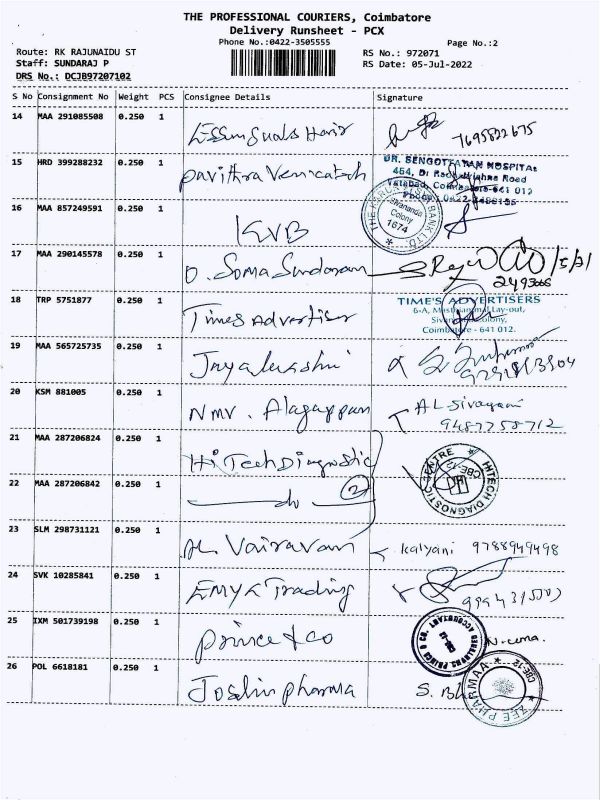 THE PROFESSIONAL COURIERS, Coimbatore
Delivery Runsheet - PCX
Phone No.:0422-3505555
Page No.:2
Route: RK RAJUNAIDU ST
RS No.: 972071
Staff: SUNDARAJ P
RS Date: 05-Jul-2022
DRS No.: DCJB97207102
S No Consignment No Weight PCS Consignee Details Signature
14 MAA 291085508 0.250 1
7695822675
15 HRD 399288232 0.250 1 Pavithra Venkatesh
DR. SENGOTTAIYAN HOSPITAL
454, Dr Radhakrishna Road
Tatabad, Coimbatore-641 012
16 MAA 857249591 0.250 1 KVB
Sivananda
Colony
1674
17 MAA 290145578 0.250 1 O. Soma Sundaram
18 TRP 5751877 0.250 1 Times Advertiser
TIME'S ADVERTISERS
Lay-out,
Colony,
Coimbatore - 641 012.
19 MAA 565725735 0.250 1 Jayalakshmi
20 KSM 881005 0.250 1 NMV. Alagappan
AL-Sivagami
9487758712
21 MAA 287206824 0.250 1 HiTech Diagnostic
HITECH DIAGNOSTIC CENTRE
CBE-12
22 MAA 287206842 0.250 1 do 2
23 SLM 298731121 0.250 1 AL. Vairavan Kalyani 9788949498
24 SVK 10285841 0.250 1 EMYK Trading
25 IXM 501739198 0.250 1 Prince & co
26 POL 6618181 0.250 1 Joshin pharma
ZEE PHARMAA
CBE-12